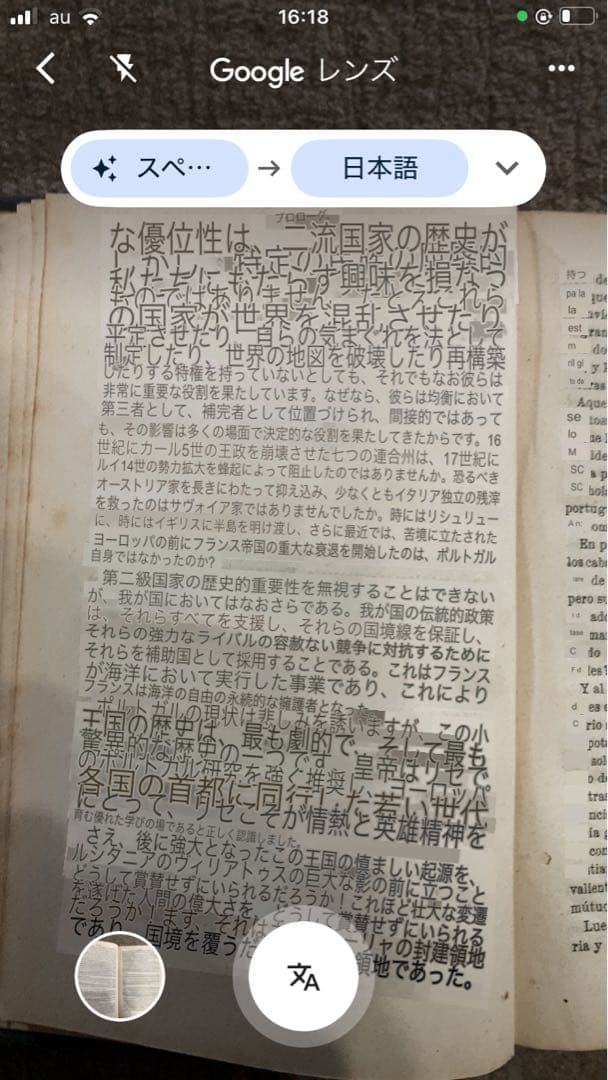 au
16:18
Google レンズ
スペ…
→
日本語
プロローグ
な優位性は、二流国家の歴史が
しかし、特定の
私たちにもたらす興味を損なう
ものではありません。たとえこれら
の国家が世界を混乱させたり
平定させたり、自らの気まぐれを法として
制定したり、世界の地図を破壊したり再構築
したりする特権を持っていないとしても、それでもなお彼らは
非常に重要な役割を果たしています。なぜなら、彼らは均衡において
第三者として、補完者として位置づけられ、間接的ではあって
も、その影響は多くの場面で決定的な役割を果たしてきたからです。16
世紀にカール5世の王政を崩壊させた七つの連合州は、17世紀に
ルイ14世の勢力拡大を蜂起によって阻止したのではありませんか。恐るべき
オーストリア家を長きにわたって抑え込み、少なくともイタリア独立の残滓
を救ったのはサヴォイア家ではありませんでしたか。時にはリシュリュー
に、時にはイギリスに半島を明け渡し、さらに最近では、苦境に立たされた
ヨーロッパの前にフランス帝国の重大な衰退を開始したのは、ポルトガル
自身ではなかったのか?
第二級国家の歴史的重要性を無視することはできない
が、我が国においてはなおさらである。我が国の伝統的政策
は、それらすべてを支援し、それらの国境線を保証し、
それらの強力なライバルの容赦ない競争に対抗するために
それらを補助国として採用することである。これはフランス
が海洋において実行した事業であり、これにより
フランスは海洋の自由の永続的な擁護者となった。
ポルトガルの現状は悲しみを誘いますが、この小
王国の歴史は、最も劇的で、そして最も
驚異的な歴史の一つです。皇帝はリセで
のポルトガル研究を強く推奨し、ヨーロッパ
各国の首都に同行した若い世代
にとって、リセこそが情熱と英雄精神を
育む優れた学びの場であると正しく認識しました。
さえ、後に強大となったこの王国の慎ましい起源を、
ルシタニアのヴィリアトゥスの巨大な影の前に立つこと
どうして賞賛せずにいられるだろうか!これほど壮大な変遷
を遂げた人間の偉大さを、どうして賞賛せずにいられる
だろうか!まず、それは
リャの封建領地
であり、国境を覆うた
領地であった。
持つ
pa la
la
est
m
se
lo
M
SC
SC
Aque
portug
En p
los cab
de
pero su
Y al
rio
pota
sol
o de
tras
con
valient
mútuo
Lue
ria y